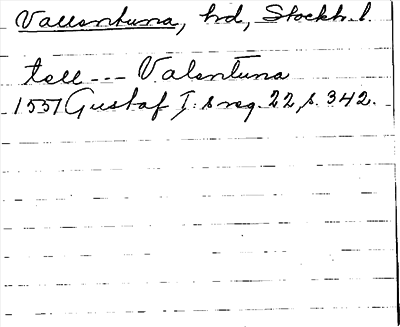 Vallentuna, hd, Stockh. l.
tell --- Valentuna
1551 Gustaf I: s reg. 22, s. 342.